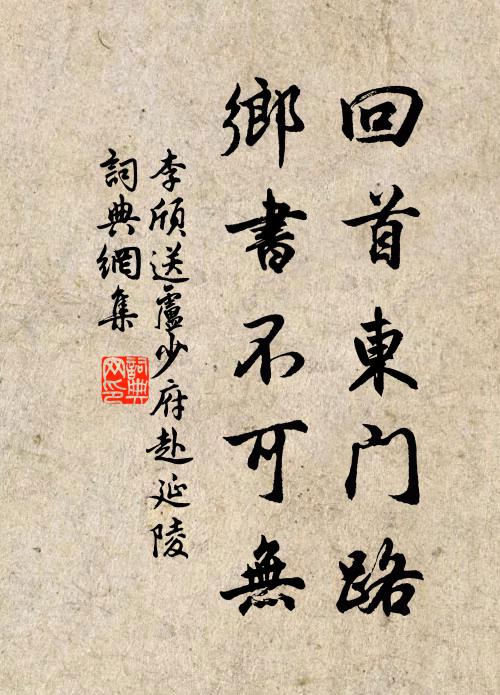 回首東門路
鄉書不可無
李頎送盧少府赴延陵
詞典網集
詞典網印